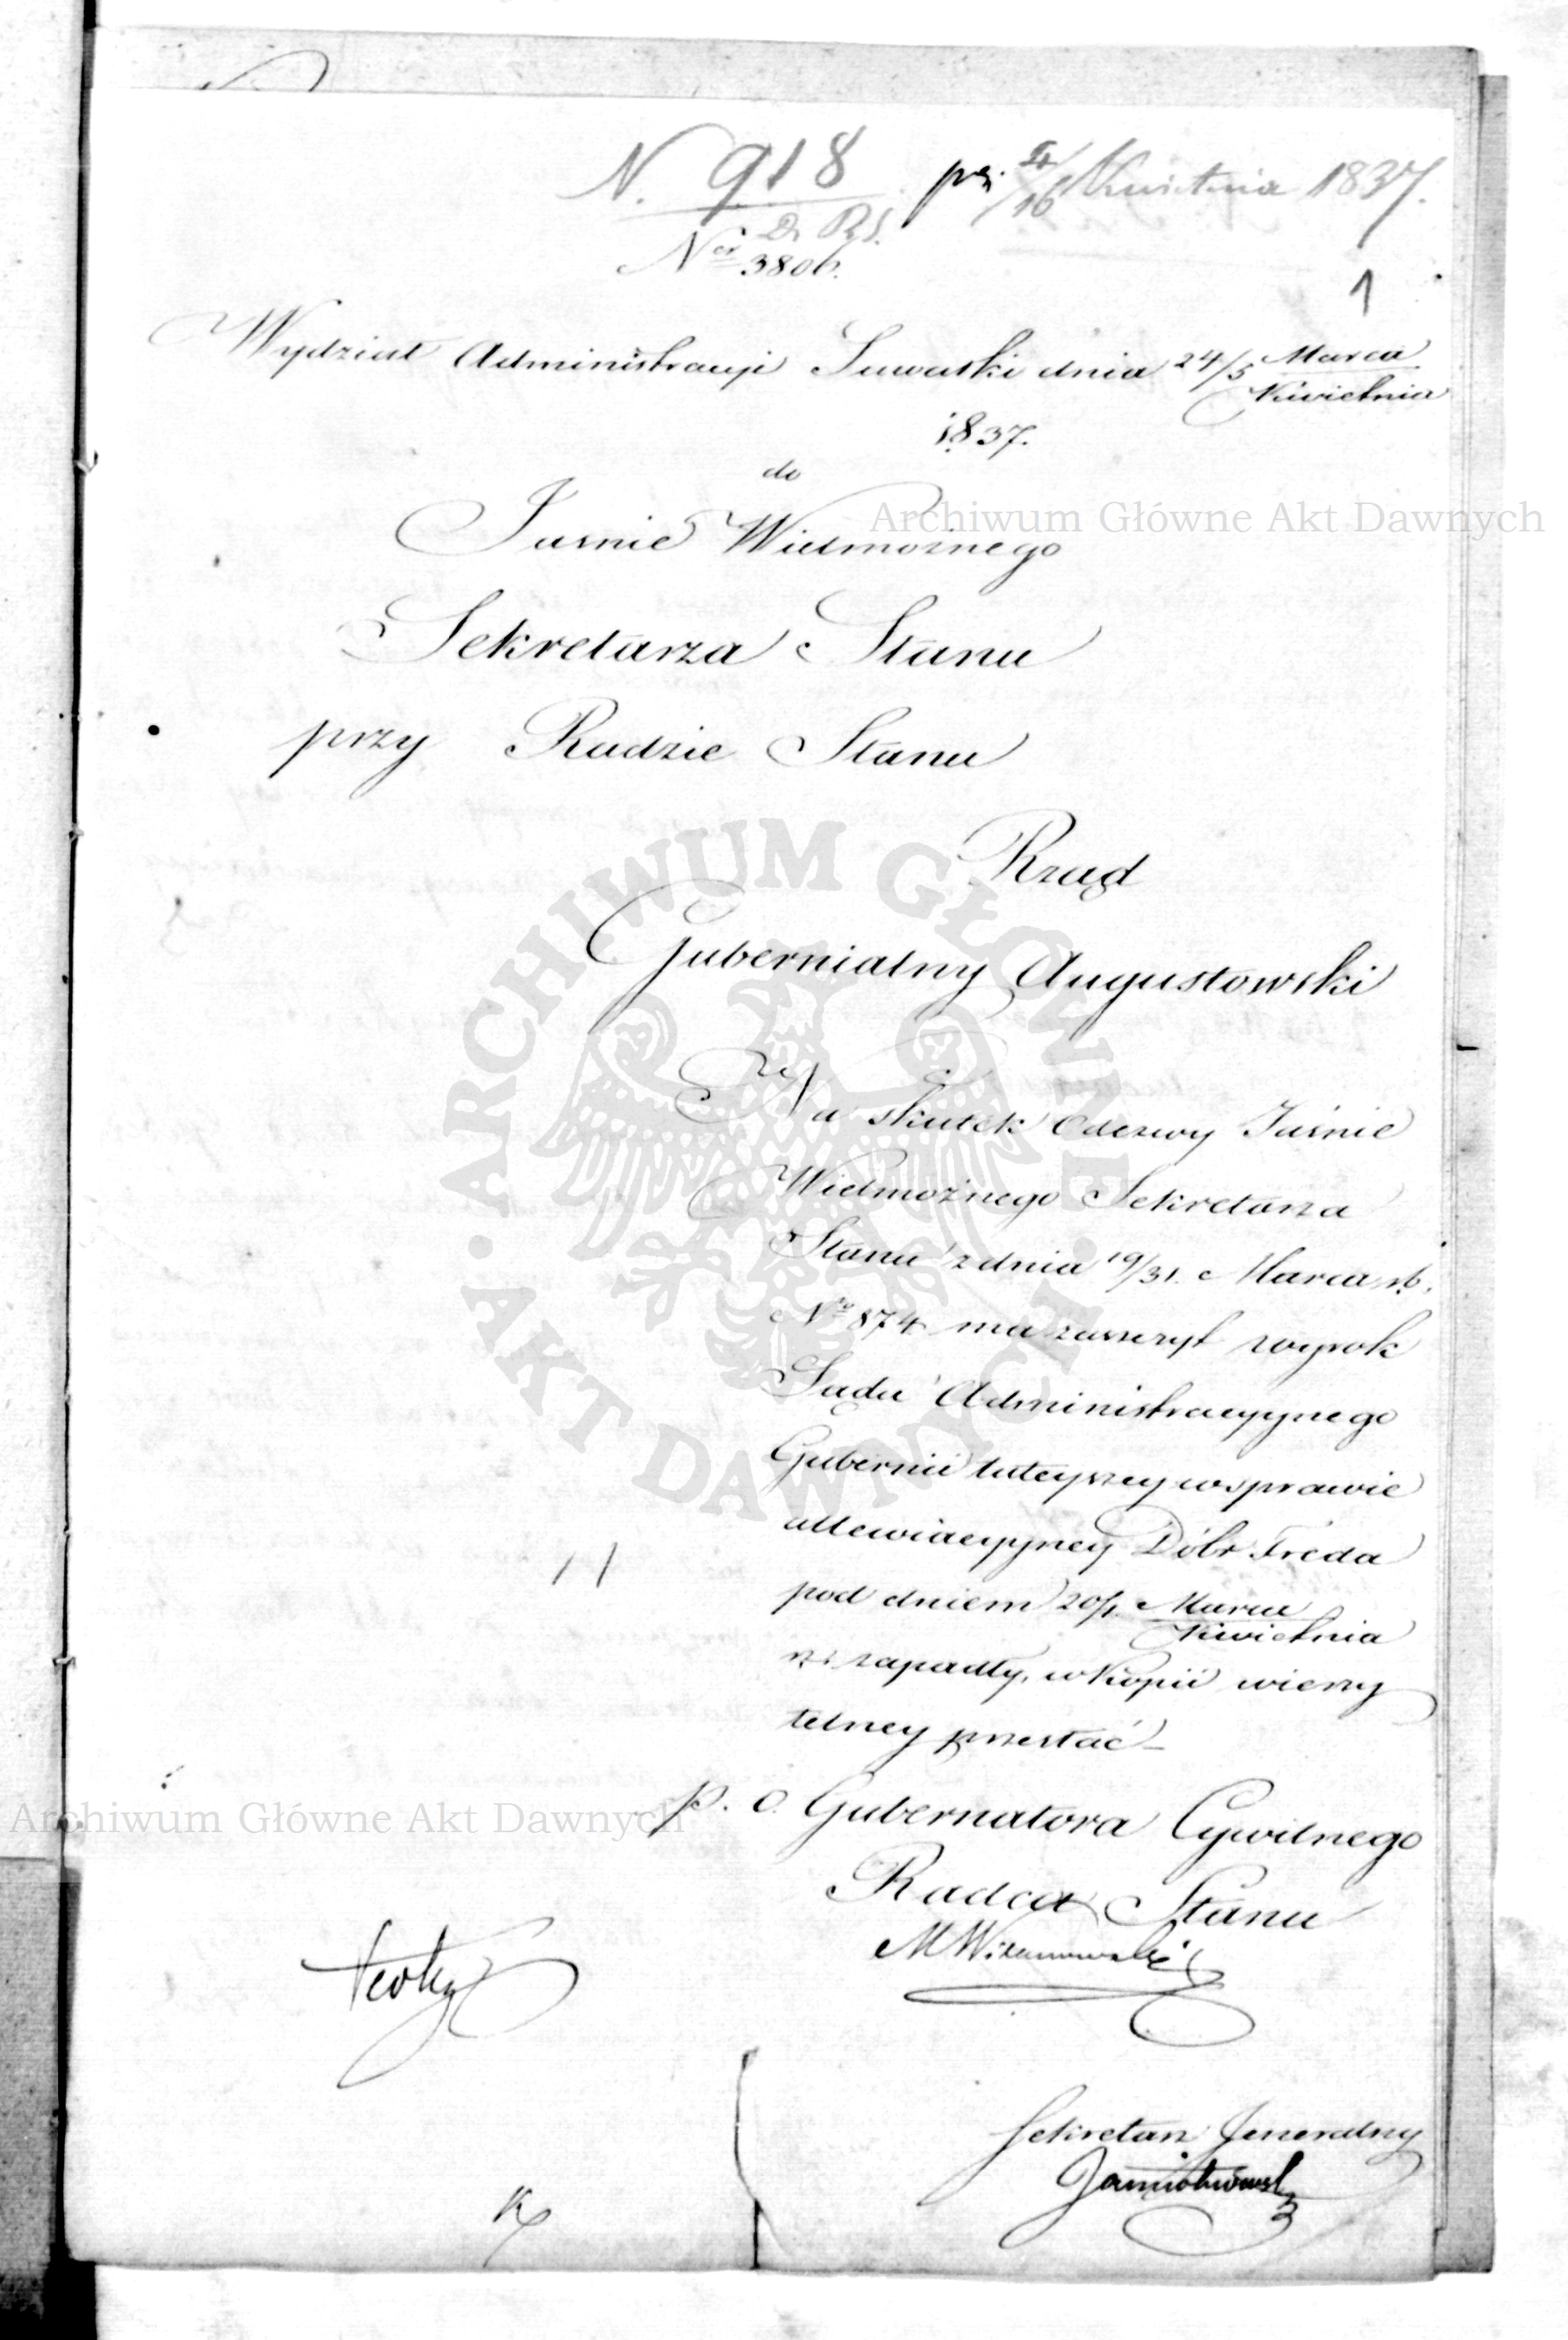 N. 918 prz. 4/16 Kwietnia 1837.
D. R. S.
Nr 3806.
1
Wydział Administracji Suwałki dnia 24/5 Marca
Kwietnia
1837.
do
Archiwum Główne Akt Dawnych
Jaśnie Wielmożnego
Sekretarza Stanu
przy Radzie Stanu
Rząd
Gubernialny Augustowski
ARCHIWUM GŁÓWNE AKT DAWNYCH
Na skutek Odezwy Jaśnie
Wielmożnego Sekretarza
Stanu z dnia 19/31. Marca r.b.
No 874 ma zaszczyt wyrok
Sądu Administracyjnego
Gubernii tuteyszey w sprawie
allewiacyyney Dóbr Freda
pod dniem 20/1. Marca
Kwietnia
zapadły, w kopii wierzy
telney przesłać
p. o. Gubernatora Cywilnego
Archiwum Główne Akt Dawnych
Radca Stanu
Sekretarz Jeneralny